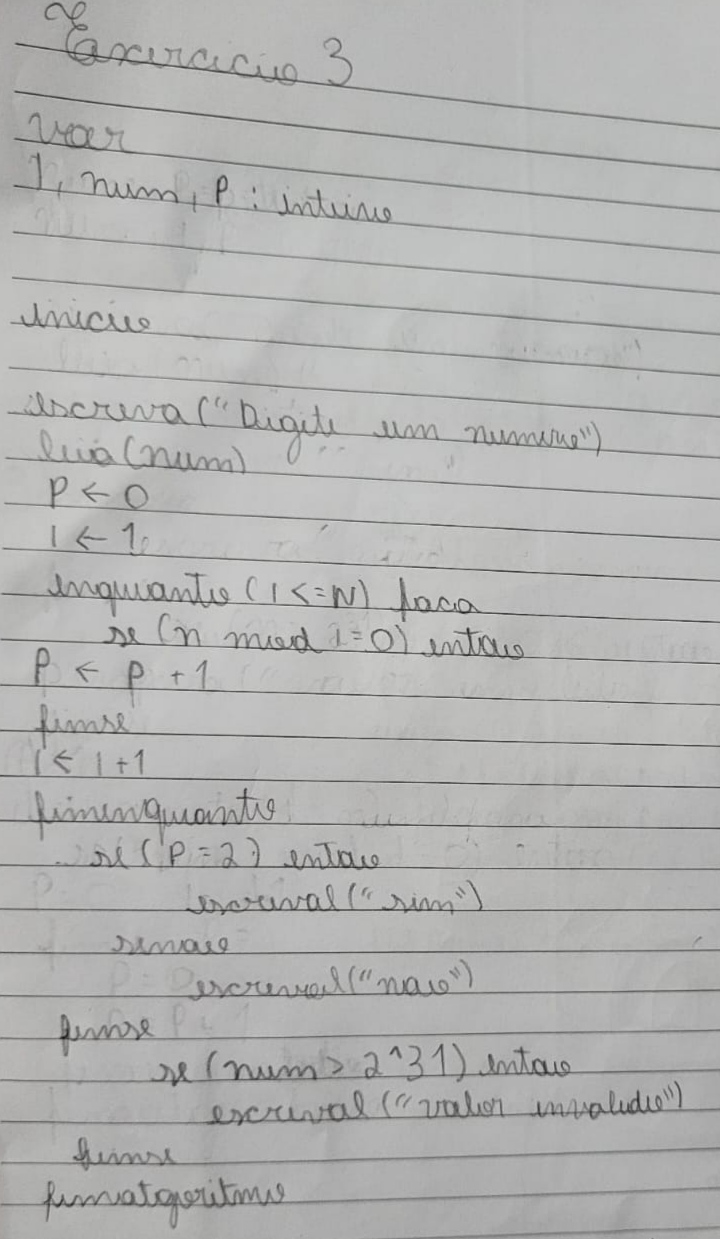 Exercicio 3
var
I, num, P : inteiro
inicio
escreva("Digite um numero")
leia(num)
P ← 0
I ← 1
enquanto (I <= N) faca
se (n mod I = 0) entao
P ← P + 1
fimse
I ← I + 1
fimenquanto
se (P = 2) entao
escreval("sim")
senao
escreval("nao")
fimse
se (num > 2^31) entao
escreval("valor invalido")
fimse
fimalgoritmo